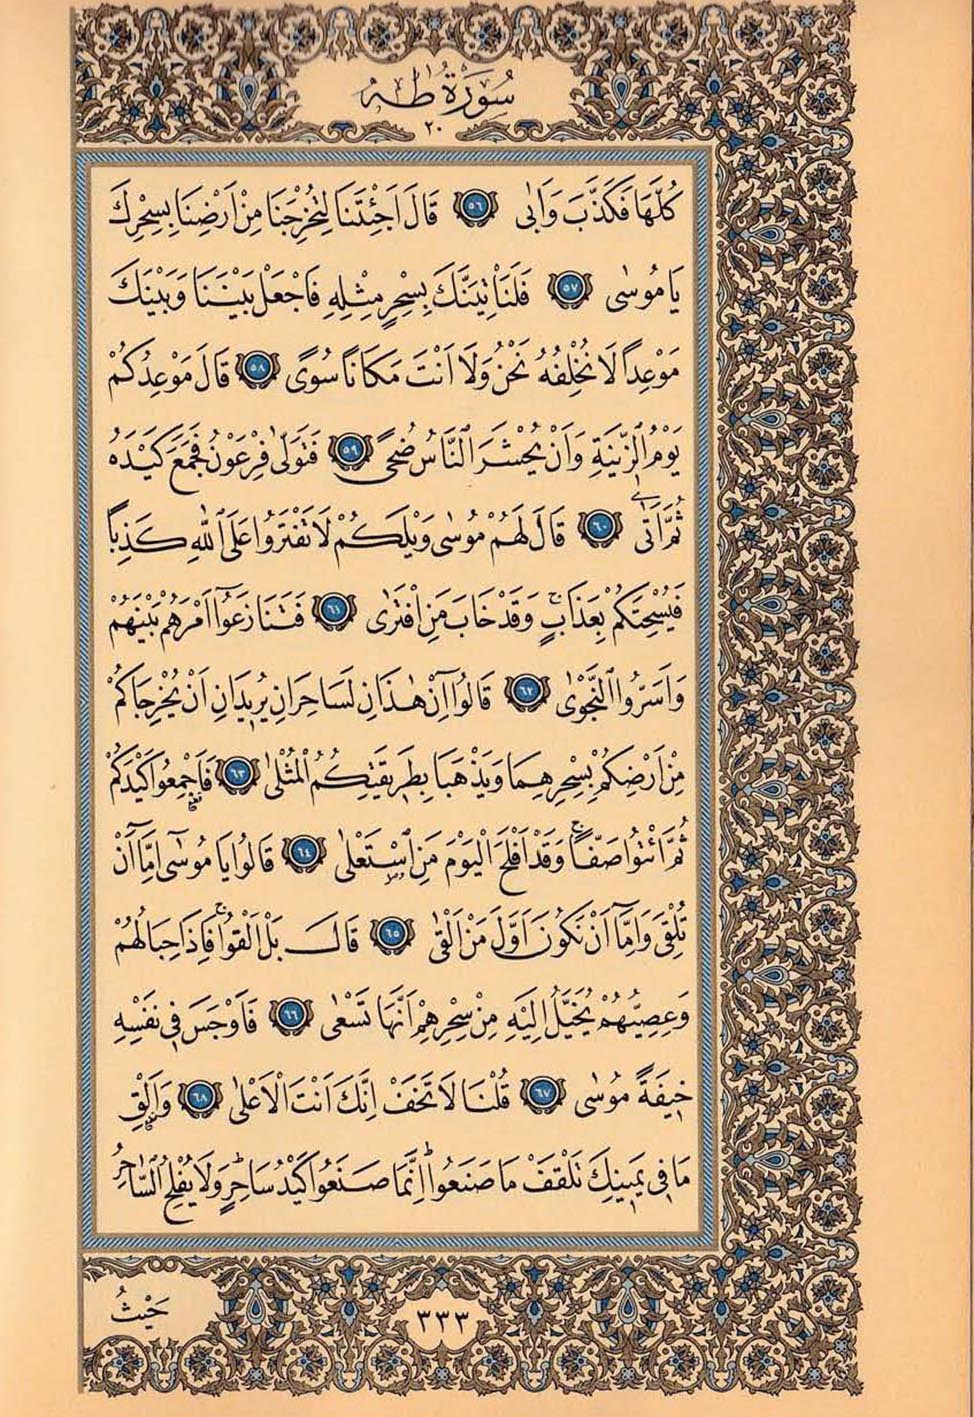 سُورَةُ طٰهٰ
٢٠
كُلَّهَا فَكَذَّبَ وَاَبٰى ٥٦ قَالَ اَجِئْتَنَا لِتُخْرِجَنَا مِنْ اَرْضِنَا بِسِحْرِكَ
يَا مُوسٰى ٥٧ فَلَنَاْتِيَنَّكَ بِسِحْرٍ مِثْلِهِ فَاجْعَلْ بَيْنَنَا وَبَيْنَكَ
مَوْعِدًا لَا نُخْلِفُهُ نَحْنُ وَلَا اَنْتَ مَكَانًا سُوًى ٥٨ قَالَ مَوْعِدُكُمْ
يَوْمُ الزّ۪ينَةِ وَاَنْ يُحْشَرَ النَّاسُ ضُحًى ٥٩ فَتَوَلّٰى فِرْعَوْنُ فَجَمَعَ كَيْدَهُ
ثُمَّ اَتٰى ٦٠ قَالَ لَهُمْ مُوسٰى وَيْلَكُمْ لَا تَفْتَرُوا عَلَى اللّٰهِ كَذِبًا
فَيُسْحِتَكُمْ بِعَذَابٍۚ وَقَدْ خَابَ مَنِ افْتَرٰى ٦١ فَتَنَازَعُٓوا اَمْرَهُمْ بَيْنَهُمْ
وَاَسَرُّوا النَّجْوٰى ٦٢ قَالُٓوا اِنْ هٰذَانِ لَسَاحِرَانِ يُر۪يدَانِ اَنْ يُخْرِجَاكُمْ
مِنْ اَرْضِكُمْ بِسِحْرِهِمَا وَيَذْهَبَا بِطَر۪يقَتِكُمُ الْمُثْلٰى ٦٣ فَاَجْمِعُوا كَيْدَكُمْ
ثُمَّ ائْتُوا صَفًّاۚ وَقَدْ اَفْلَحَ الْيَوْمَ مَنِ اسْتَعْلٰى ٦٤ قَالُوا يَا مُوسٰٓى اِمَّٓا اَنْ
تُلْقِيَ وَاِمَّٓا اَنْ نَكُونَ اَوَّلَ مَنْ اَلْقٰى ٦٥ قَالَ بَلْ اَلْقُواۚ فَاِذَا حِبَالُهُمْ
وَعِصِيُّهُمْ يُخَيَّلُ اِلَيْهِ مِنْ سِحْرِهِمْ اَنَّهَا تَسْعٰى ٦٦ فَاَوْجَسَ ف۪ي نَفْسِهِ
خ۪يفَةً مُوسٰى ٦٧ قُلْنَا لَا تَخَفْ اِنَّكَ اَنْتَ الْاَعْلٰى ٦٨ وَاَلْقِ
مَا ف۪ي يَم۪ينِكَ تَلْقَفْ مَا صَنَعُواۜ اِنَّمَا صَنَعُوا كَيْدُ سَاحِرٍۜ وَلَا يُفْلِحُ السَّاحِرُ
٣٣٣
حَيْثُ